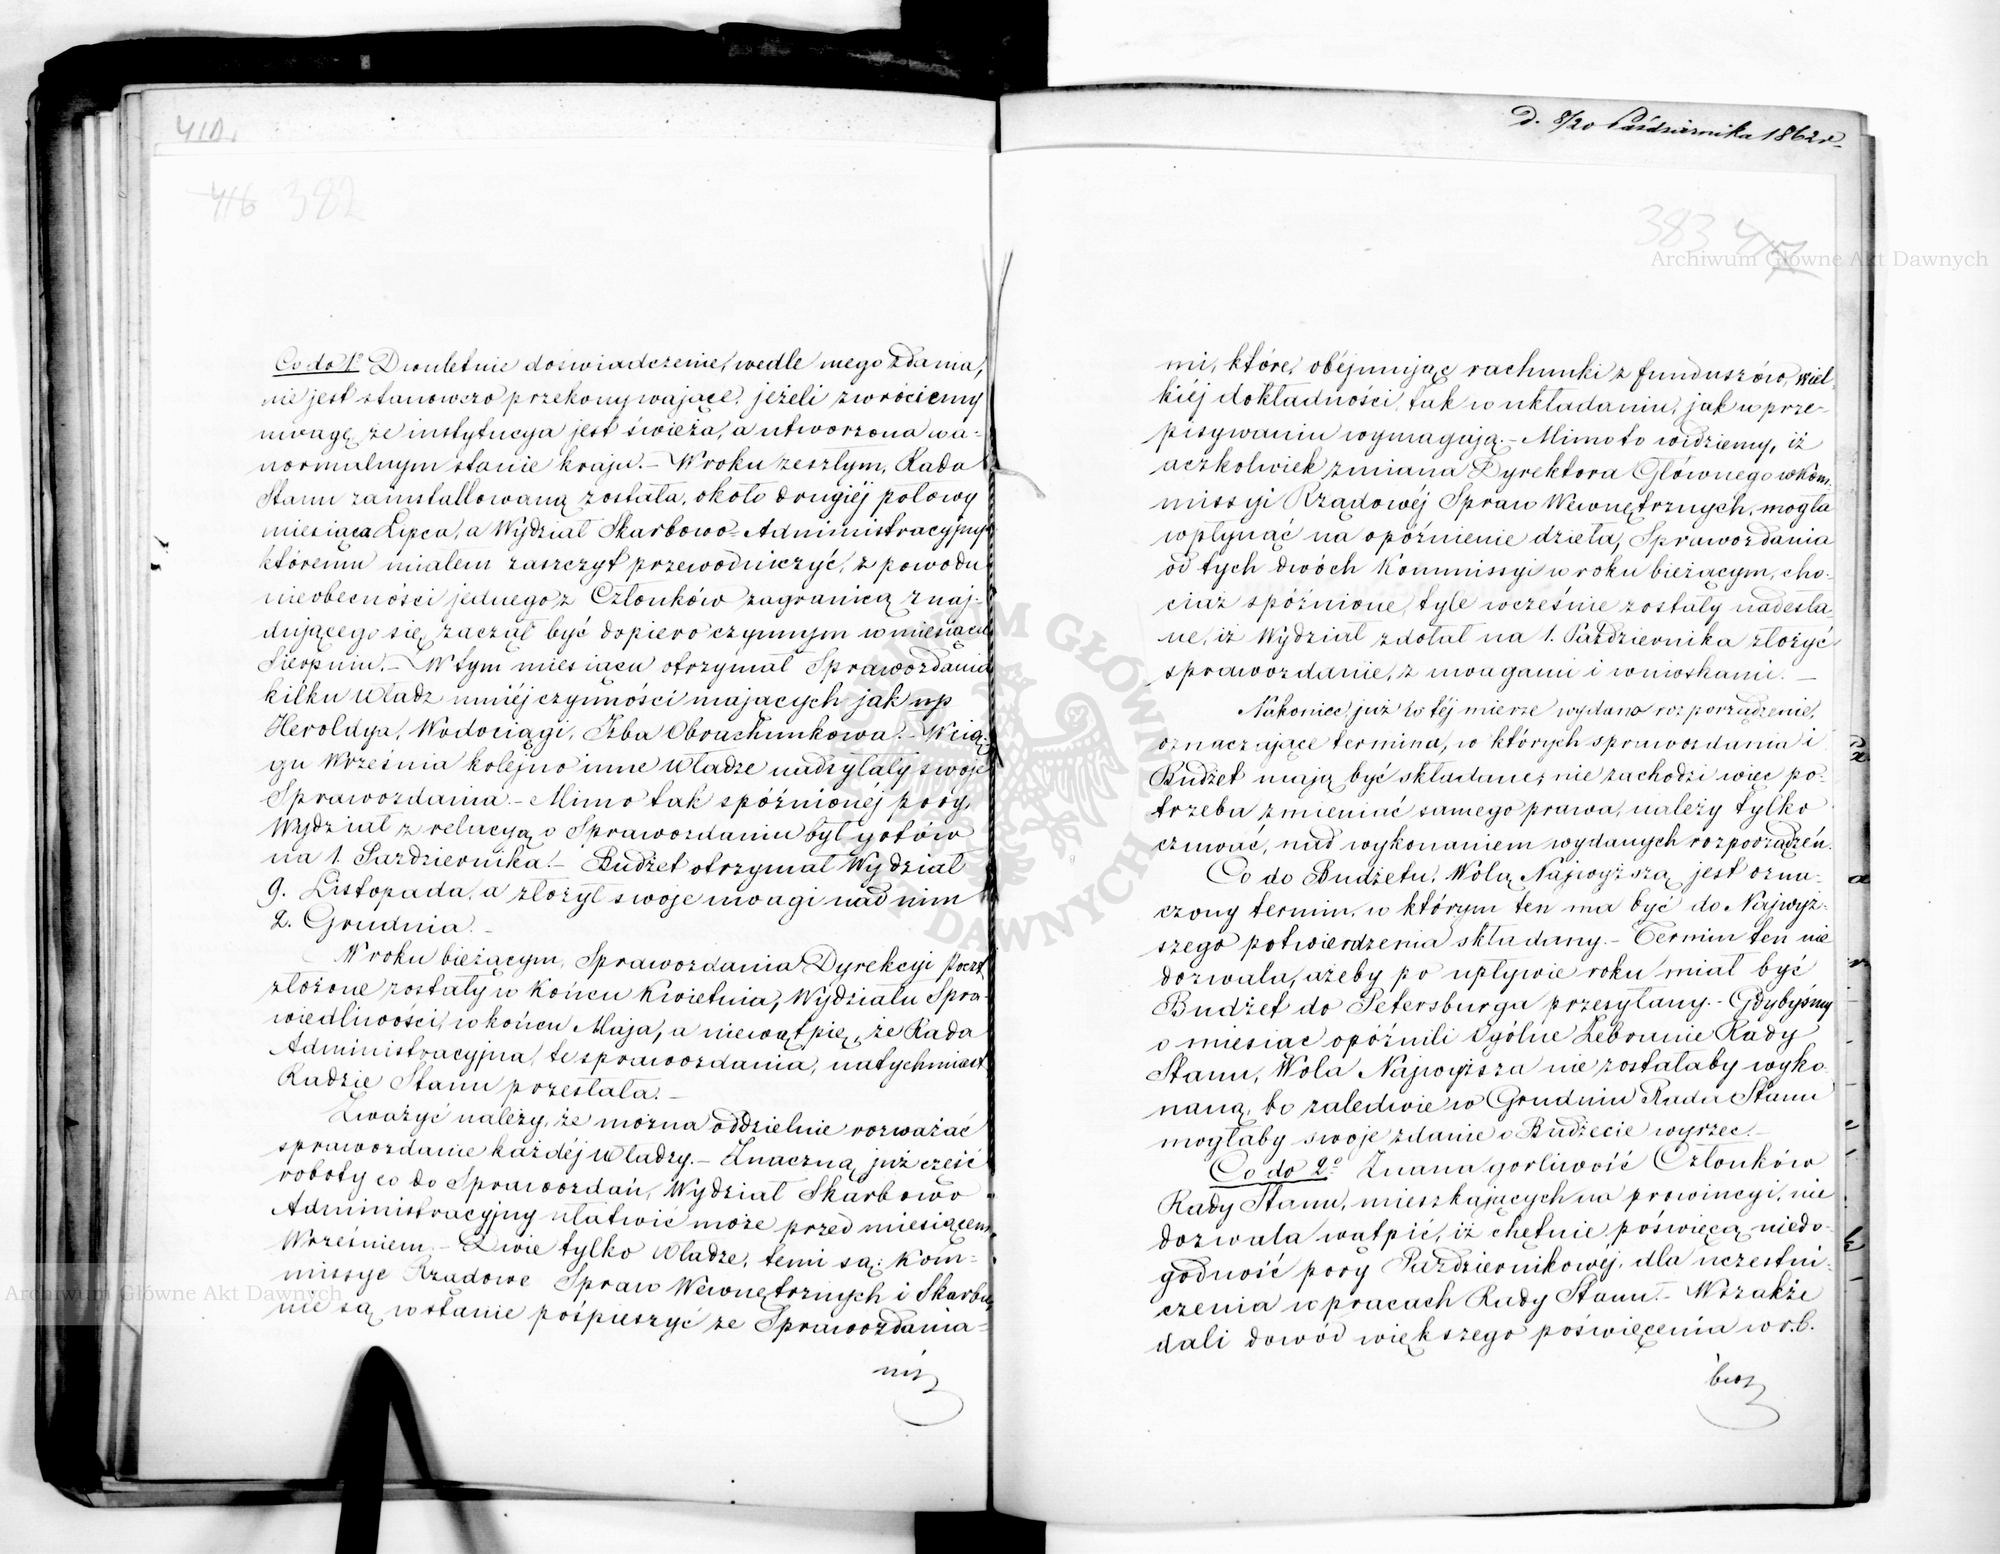 410.
416 382
Co do 1º Dwuletnie doświadczenie, wedle mego zdania,
nie jest stanowczo przekonywające, jeżeli zwróciemy
uwagę, że instytucya jest świeża, a utworzona wa-
normalnym stanie kraju. – W roku zeszłym, Rada
Stanu zainstallowaną została, około drugiéj połowy
miesiąca Lipca, a Wydział Skarbowo-Administracyjny
któremu miałem zaszczyt przewodniczyć, z powodu
nieobecności jednego z Członków zagranicą znaj-
dującego się, zaczął być dopiero czynnym w miesiącu
Sierpniu. – W tym miesiącu otrzymał Sprawozdania
kilku Władz mniéj czynności mających jak np
Heroldya, Wodociągi, Izba Obrachunkowa. – W cią-
gu Września kolejno inne Władze nadsyłały swoje
Sprawozdania. – Mimo tak spóźnionéj pory,
Wydział z relacyą o Sprawozdaniu był gotów
na 1. Października. – Budżet otrzymał Wydział
9. Listopada, a złożył swoje uwagi nad nim
2. Grudnia. –
W roku bieżącym, Sprawozdania Dyrekcyi Poczt
złożone zostały w końcu Kwietnia, Wydziału Spra-
wiedliwości, w końcu Maja, a niewątpię, że Rada
Administracyjna, te sprawozdania, natychmiast
Radzie Stanu przesłała. –
Zważyć należy, że można oddzielnie rozważać
sprawozdanie każdéj Władzy. – Znaczną już cześć
roboty co do Sprawozdań, Wydział Skarbowo
Administracyjny ułatwić może przed miesiącem
Wrześniem. – Dwie tylko Władze, temi są: Kom-
missye Rządowe Spraw Wewnętrznych i Skarbu,
nie są w stanie pośpieszyć ze Sprawozdania-
mi,
D. 8/20 Października 1862 r.
383 417
mi, które, obéjmując rachunki z funduszów, wiel-
kiéj dokładności, tak w układaniu, jak w prze-
pisywaniu wymagają. – Mimo to widziemy, iż
aczkolwiek zmiana Dyrektora Głównego w Kom-
missyi Rządowéj Spraw Wewnętrznych, mogła
wpłynąć na opóźnienie dzieła, Sprawozdania
od tych dwóch Kommissyi w roku bieżącym, cho-
ciaż spóźnione, tyle wcześnie zostały nadesła
ne, iż Wydział zdołał na 1. Października złożyć
sprawozdanie, z uwagami i wnioskami. –
Nakoniec, już w téj mierze wydano rozporządzenie,
oznaczające termina, w których sprawozdania i
Budżet mają być składane; nie zachodzi więc po-
trzeba zmieniać samego prawa, należy tylko
czuwać, nad wykonaniem wydanych rozporządzeń.
Co do Budżetu, Wolą Najwyższą jest ozna-
czony termin, w którym ten ma być do Najwyż-
szego potwierdzenia składany. – Termin ten nie
dozwala, ażeby po upływie roku miał być
Budżet do Petersburga przesyłany. – Gdybyśmy
o miesiac opóźnili Ogólne Zebranie Rady
Stanu, Wola Najwyższa nie zostałaby wyko-
naną, bo zaledwie w Grudniu Rada Stanu
mogłaby swoje zdanie o Budżecie wyrzec. –
Co do 2º Znana gorliwość Członków
Rady Stanu, mieszkających na prowincyi, nie
dozwala watpić, iż chętnie poświęcą niedo-
godność pory Październikowéj, dla uczestni-
czenia w pracach Rady Stanu. – Wszakże
dali dowód większego poświęcenia w r. b.
bio,
Archiwum Główne Akt Dawnych
Archiwum Główne Akt Dawnych
ARCHIWUM GŁÓWNE AKT DAWNYCH